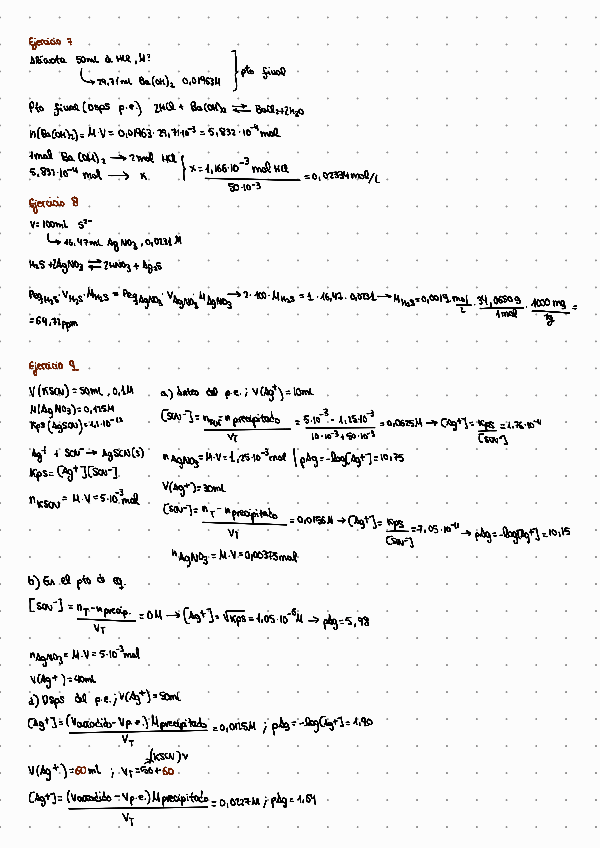 Ejercicio 7
Alícuota 50ml de HCl, M?
↳ 29,71ml Ba(OH)₂ 0,01963M } pto final
Pto final (Dsps p.e.) 2HCl + Ba(OH)₂ ⇌ BaCl₂+2H₂O
n(Ba(OH)₂) = M·V = 0,01963·29,71·10⁻³ = 5,832·10⁻⁴ mol
1mol Ba(OH)₂ → 2mol HCl
5,832·10⁻⁴ mol → x } x = 1,166·10⁻³ mol HCl / 50·10⁻³ = 0,02334 mol/L
Ejercicio 8
V=100ml S²⁻
↳ 16,47ml AgNO₃, 0,0231 M
H₂S + 2AgNO₃ ⇌ 2HNO₃ + Ag₂S
Peq H₂S · V H₂S · M H₂S = Peq AgNO₃ · V AgNO₃ · M AgNO₃ → 2·100·M H₂S = 1·16,47·0,0231 → M H₂S = 0,0019 mol/L · 34,0650g/1mol · 1000mg/1g =
= 64,72ppm
Ejercicio 9
V(KSCN) = 50ml, 0,1M
M(AgNO₃) = 0,125M
Kps (AgSCN) = 1,1·10⁻¹²
Ag⁺ + SCN⁻ → AgSCN(s)
Kps = [Ag⁺][SCN⁻]
n KSCN = M·V = 5·10⁻³ mol
a) Antes del p.e.; V(Ag⁺) = 10ml
[SCN⁻] = n SCN⁻ - n precipitado / V_T = 5·10⁻³ - 1,25·10⁻³ / 10·10⁻³ + 50·10⁻³ = 0,0625M → [Ag⁺] = Kps/[SCN⁻] = 1,76·10⁻¹¹
n AgNO₃ = M·V = 1,25·10⁻³ mol { pAg = -log[Ag⁺] = 10,75
V(Ag⁺) = 30ml
[SCN⁻] = n_T - n precipitado / V_T = 0,0156M → [Ag⁺] = Kps/[SCN⁻] = 7,05·10⁻¹¹ → pAg = -log[Ag⁺] = 10,15
n AgNO₃ = M·V = 0,00375mol
b) En el pto de eq.
[SCN⁻] = n_T - n precip. / V_T = 0M → [Ag⁺] = √Kps = 1,05·10⁻⁶M → pAg = 5,98
n AgNO₃ = M·V = 5·10⁻³ mol
V(Ag⁺) = 40ml
d) Dsps del p.e.; V(Ag⁺) = 50ml
[Ag⁺] = (Vañadido - Vp.e.) M precipitado / V_T = 0,0125M ; pAg = -log[Ag⁺] = 1,90
V(Ag⁺) = 60ml ; V_T = 50 + 60
(KSCN) V
[Ag⁺] = (Vañadido - Vp.e.) M precipitado / V_T = 0,0227M ; pAg = 1,64